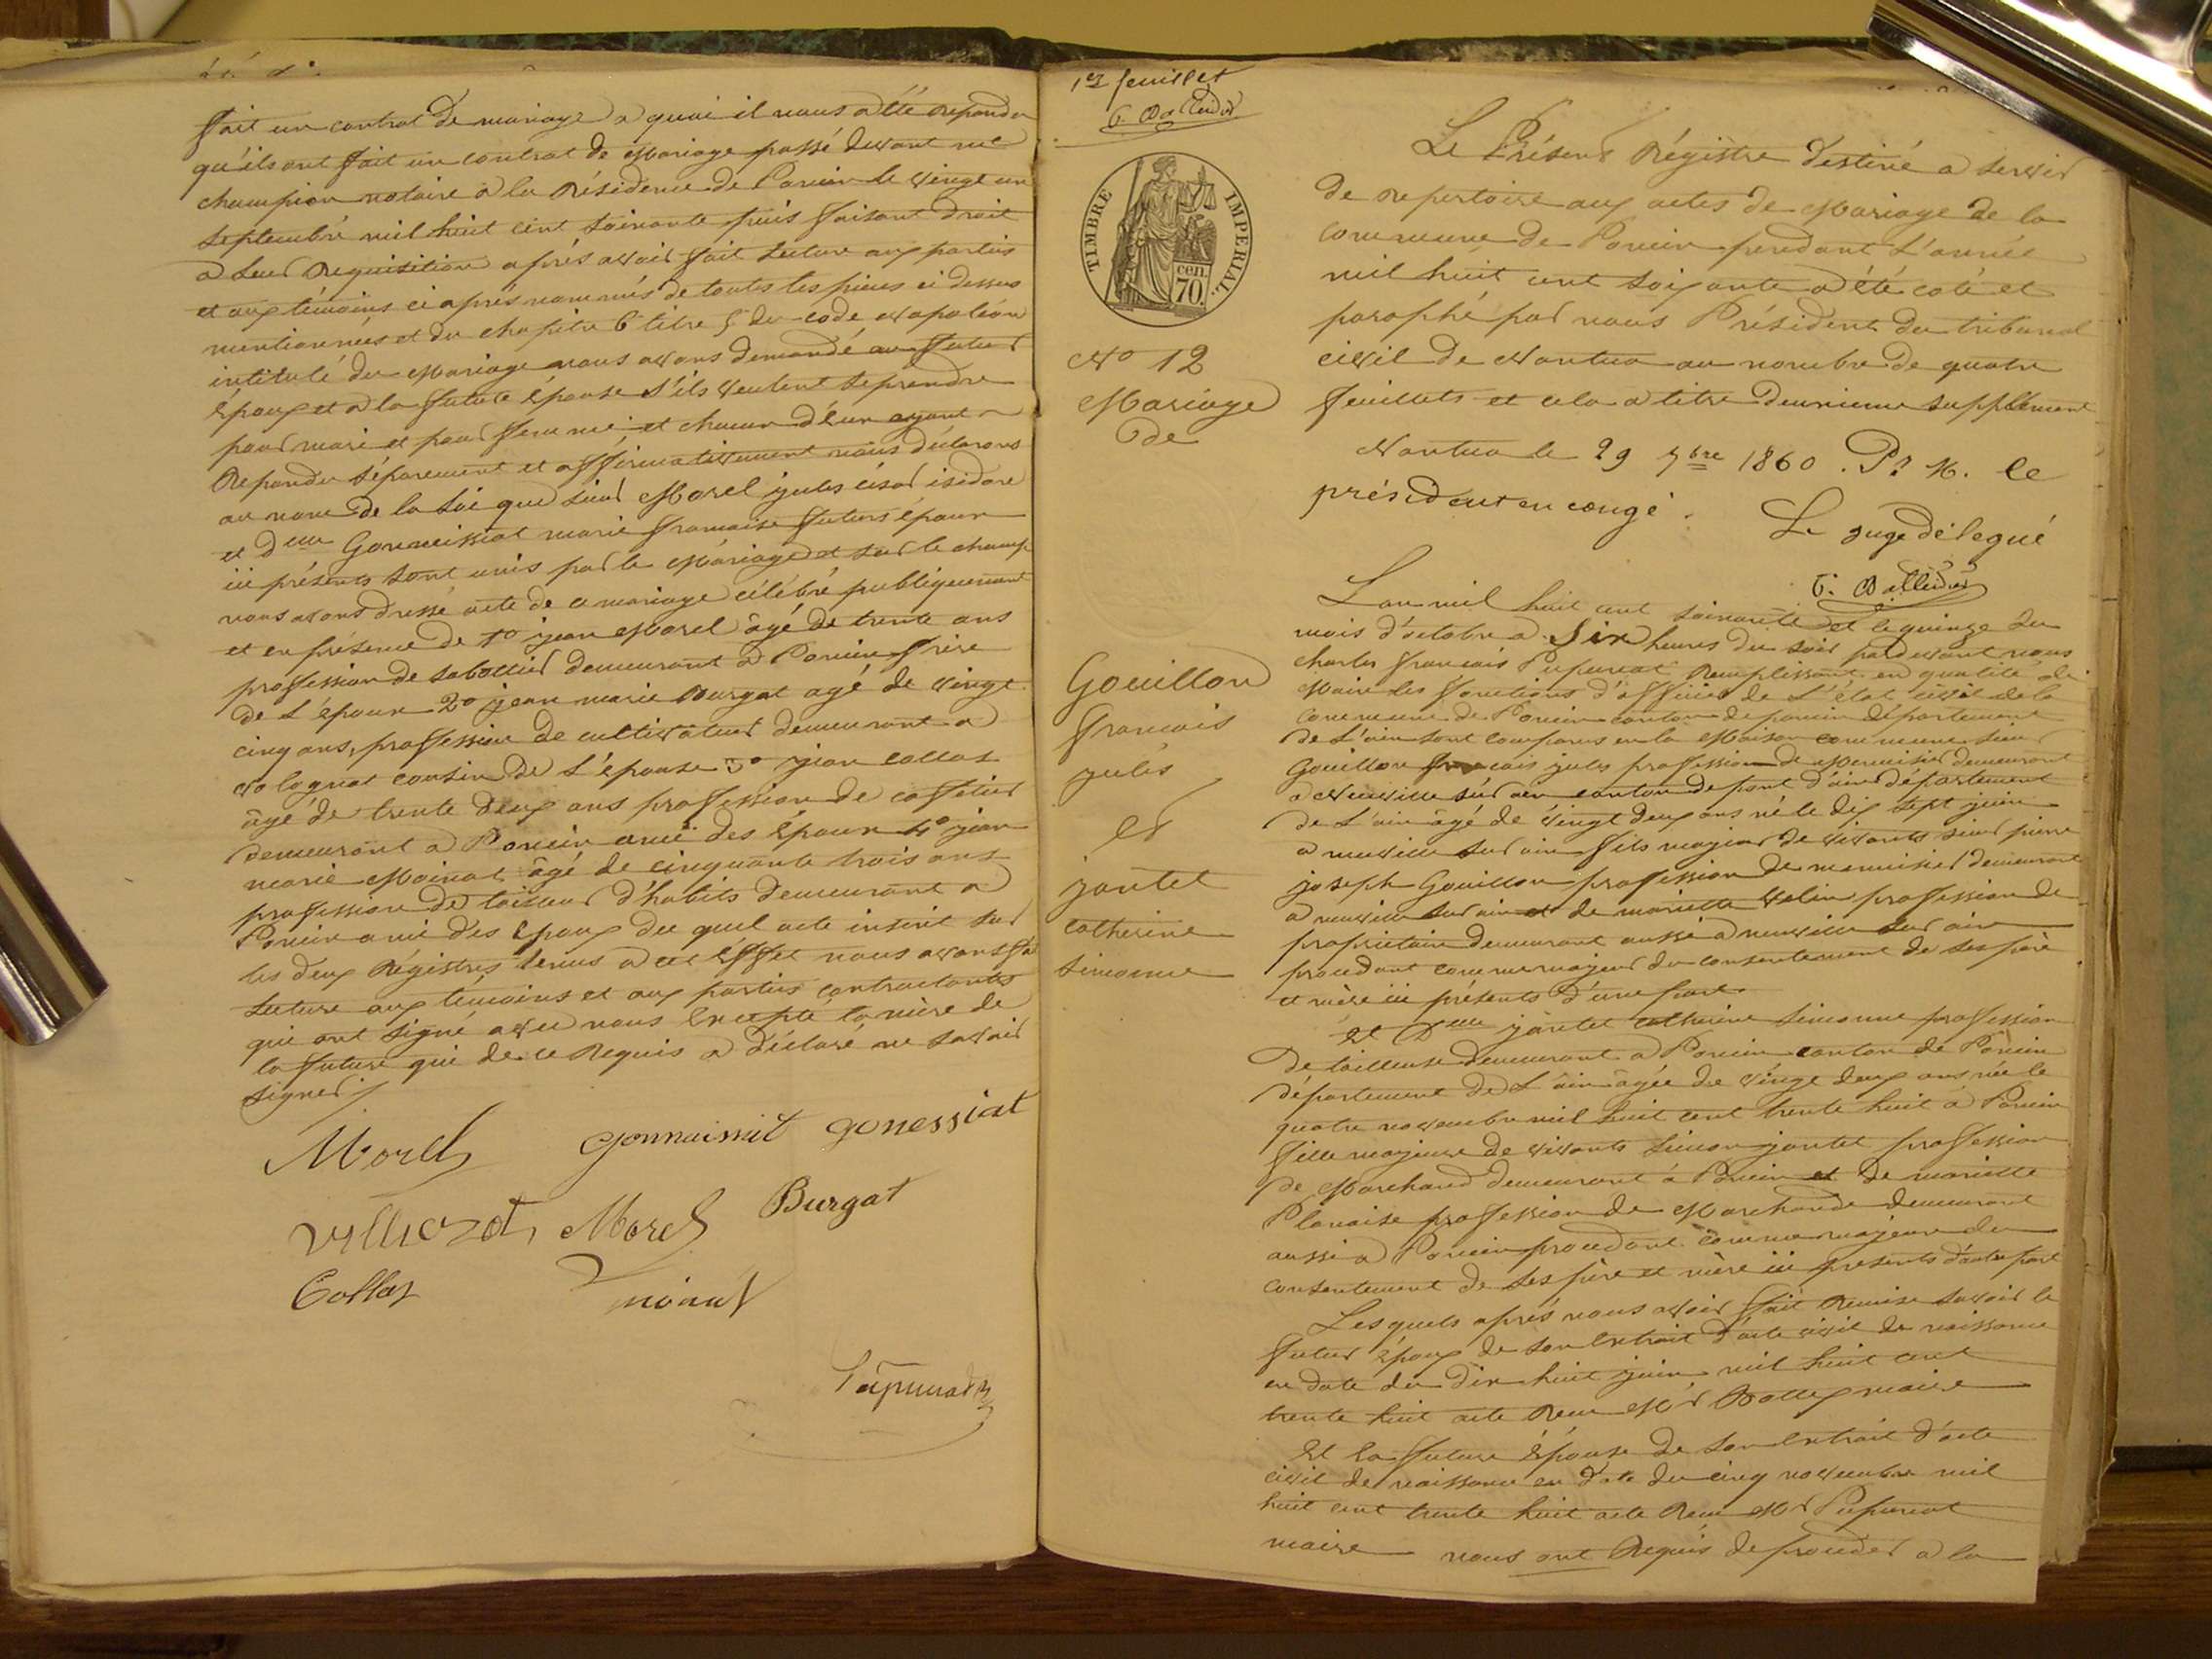 fait un contrat de mariage a quoi il nous a été repondu
qu'ils ont fait un contrat de Mariage passé devant me
champion notaire à la Résidence de Poncin le vingt un
septembre mil huit cent soixante puis faisant droit
a leur requisition aprés avoir fait lecture aux parties
et aux témoins ci aprés nommés de toutes les pièces ci dessus
mentionnées et du chapitre 6 titre 5 du code Napoléon
intitulé du Mariage nous avons demandé au futur
époux et a la future épouse s'ils veulent se prendre
pour mari et pour femme et chacun d'eux ayant
Repondu séparement et affirmativement nous déclarons
au nom de la loi que sieur Morel jules césar isidore
et delle Gonnessiat marie francoise futurs époux
ici présents sont unis par le Mariage et sur le champ
nous avons dressé acte de ce mariage célébré publiquement
et en présence de 1o jean Morel âgé de trente ans
profession de sabottier demeurant à Poncin frère
de l'époux 2o jean marie Burgat agé de vingt
cinq ans, profession de cultivateur demeurant a
volognat cousin de l'épouse 3o jean Collat
âgé de trente deux ans profession de caffetier
demeurant a Poncin ami des époux 4o jean
marie Moinat âgé de cinquante trois ans
profession de tailleur d'habits demeurant a
Poncin ami des époux du quel acte inscrit sur
les deux Régistres tenus a cet éffet nous avons fait
lecture aux témoins et aux parties contractantes
qui ont signé avec nous Excepté la mère de
la future qui de ce Requis a déclaré ne savoir
signer
Morel gonnessiat gonessiat
Morel Burgat
Collat moinat
1er feuillet
TIMBRE IMPERIAL
cen. 70.
No 12
Mariage
de
Gouillon
francois
jules
et
jantet
catherine
simonne
Le Présent Régistre destiné a servir
de repertoire aux actes de Mariage de la
commune de Poncin pendant l'année
mil huit cent soixante a été coté et
paraphé par nous Président du tribunal
civil de Nantua au nombre de quatre
feuillets et cela a titre deunieme supplément
Nantua le 29 7bre 1860. Pr M. le
président en congé.
Le juge délegué
L'an mil huit cent soixante et le quinze du
mois d'octobre a Six heures du soir par devant nous
charles francois Pupunat Remplissant en qualité de
Maire les fonctions d'officier de l'état civil de la
commune de Poncin canton de poncin département
de l'ain sont comparus en la Maison commune sieur
Gouillon francois jules profession de Menuisier demeurant
a Neuville sur ain canton de pont d'ain département
de l'ain âgé de vingt deux ans né le dix sept juin
a neuville sur ain fils majeur de vivants sieur pierre
joseph Gouillon profession de menuisier demeurant
a neuville sur ain et de mariette velin profession de
propriétaire demeurant aussi a neuville sur ain
procedant comme majeur du consentement de ses père
et mère ici présents d'une part
et Delle jantet catherine simonne profession
de tailleuse demeurant a Poncin canton de Poncin
département de l'ain âgée de vingt deux ans née le
quatre novembre mil huit cent trente huit à Poncin
fille majeure de vivants simon jantet profession
de Marchand demeurant à Poncin et de mariette
Plavaise profession de Marchande demeurant
aussi a Poncin procedant comme majeure du
consentement de ses père et mère ici présents d'autre part
Lesquels aprés nous avoir fait Remise savoir le
futur époux de son Extrait d'acte civil de naissance
en date du dix huit juin mil huit cent
trente huit acte Recu Mr maire
Et la future épouse de son Extrait d'acte
civil de naissance en date du cinq novembre mil
huit cent trente huit acte Recu Mr Pupunat
maire nous ont Requis de proceder a la